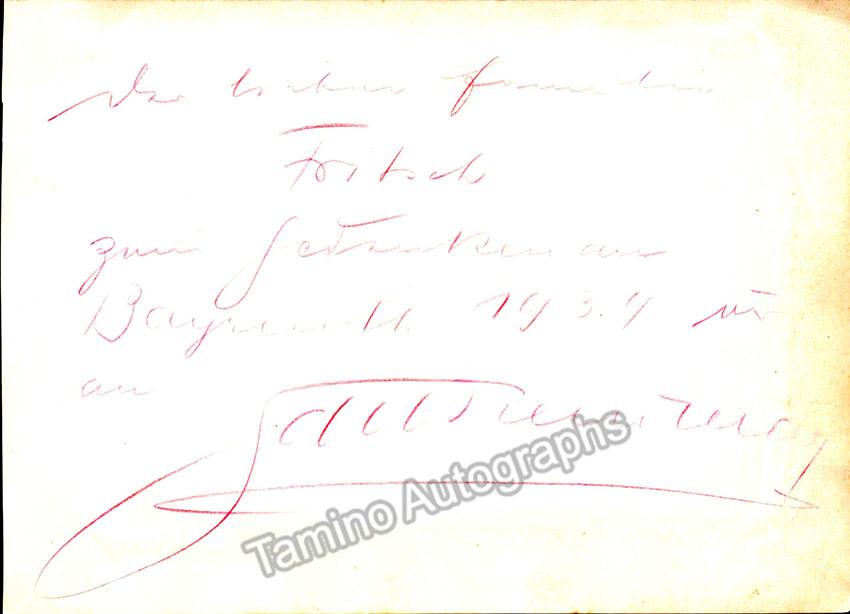 Der lieben Familie
Fritsch
zum Gedenken an
Bayreuth 1934
an
Tamino Autographs